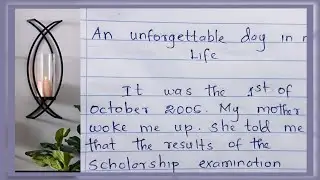 An unforgettable day in m
Life
It was the 1st of
October 2006. My mother
woke me up. She told me
that the results of the
Scholarship examination